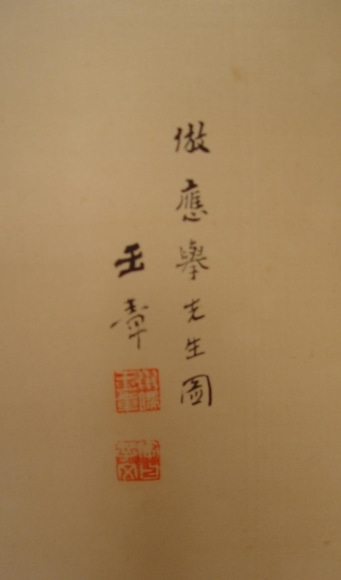 倣應擧先生圖
玉章